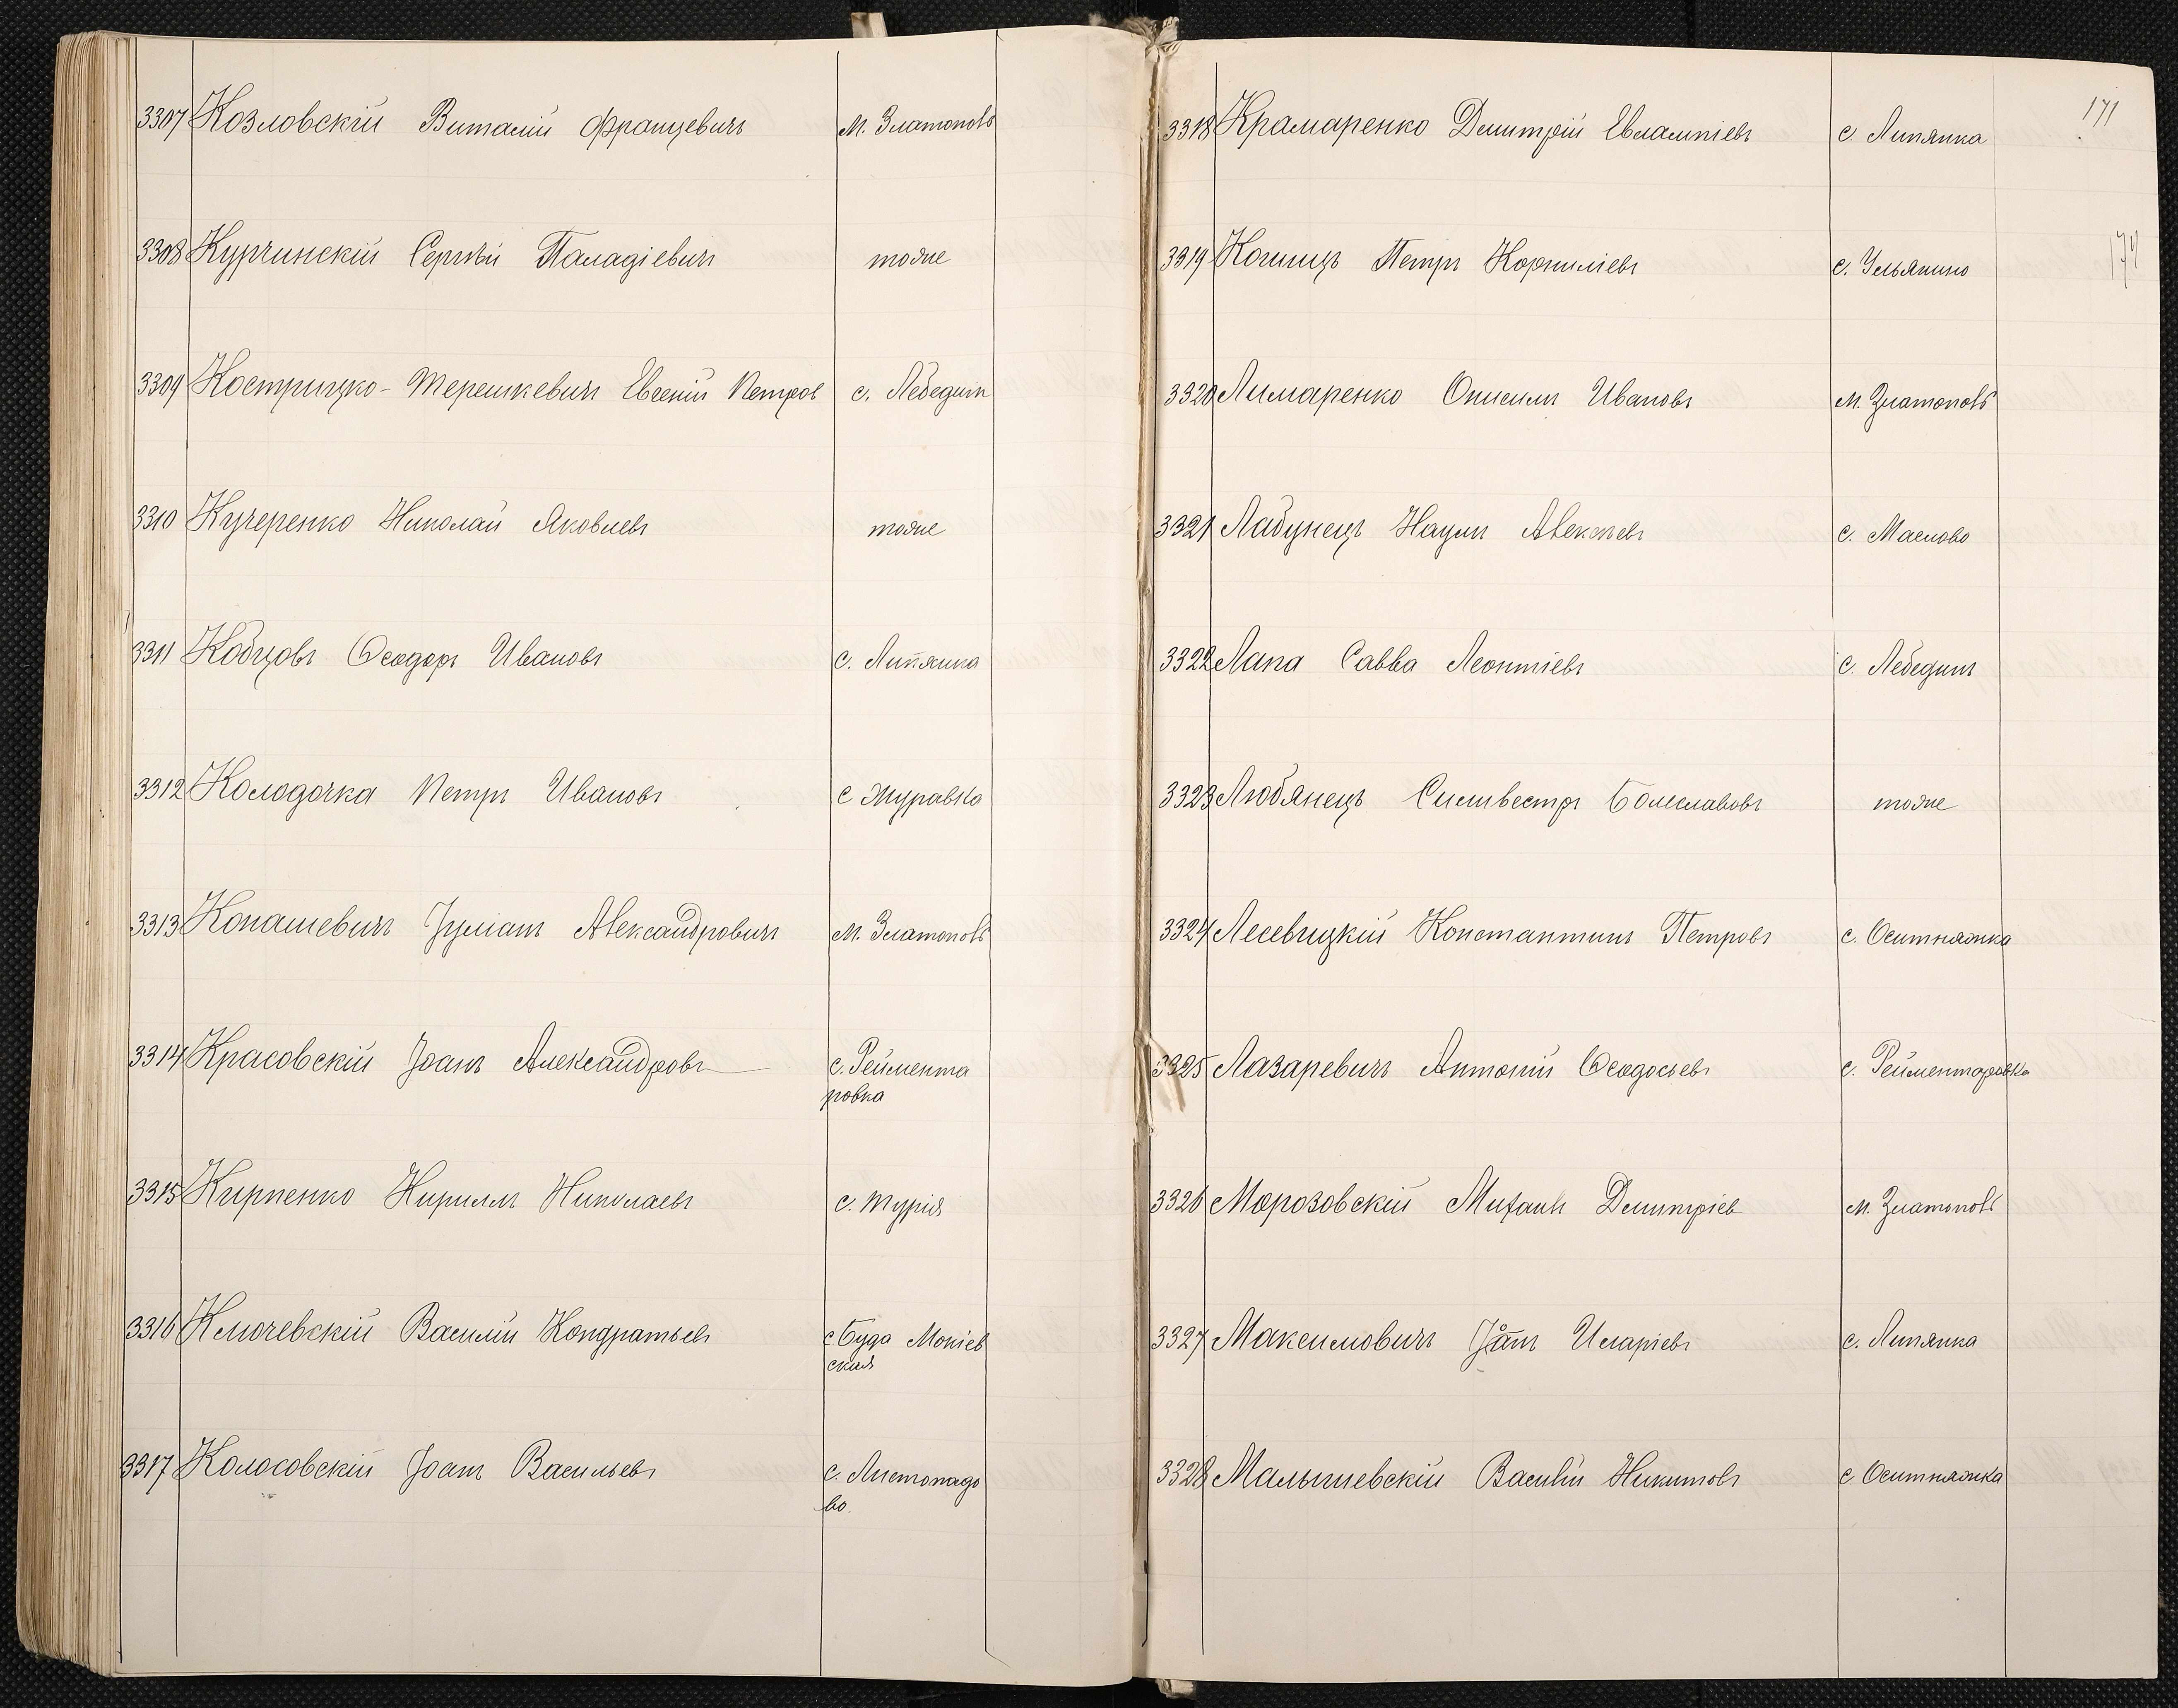 3307 Козловскій Виталій Францевичъ м. Златополь
3308 Курчинскій Сергѣй Паладіевичъ тоже
3309 Кострицко-Терешкевичъ Евгеній Петров с. Лебединъ
3310 Кучеренко Николай Яковлевъ тоже
3311 Кобцовъ Ѳеодоръ Ивановъ с. Липянка
3312 Колодочка Петръ Ивановъ с Журавка
3313 Конашевичъ Іуліанъ Александровичъ м. Златополь
3314 Красовскій Іоанъ Александровъ с. Реймента
ровка
3315 Кирпенко Кириллъ Николаевъ с. Турія
3316 Ключевскій Василій Кондратьевъ с Буда Мокіев
ская
3317 Колосовскій Іоанъ Васильевъ с. Листопадо
во.
171
3318 Крамаренко Димитрій Евлампіевъ с. Липянка
3319 Кошицъ Петръ Корниліевъ с. Ульянино
3320 Лимаренко Онисимъ Ивановъ м. Златополь
3321 Лабунецъ Наумъ Алексѣевъ с. Маслово
3322 Лапа Савва Леонтіевъ с. Лебединъ
3323 Любянецъ Сильвестръ Болеславовъ тоже
3324 Лесевицкій Константинъ Петровъ с. Оситняжка
3325 Лазаревичъ Антоній Ѳеодосьевъ с. Рейментаровка
3326 Морозовскій Михаилъ Димитріев м. Златополь
3327 Максимовичъ Іоанъ Иларіевъ с. Липянка
3328 Малышевскій Василій Никитовъ с. Оситняжка